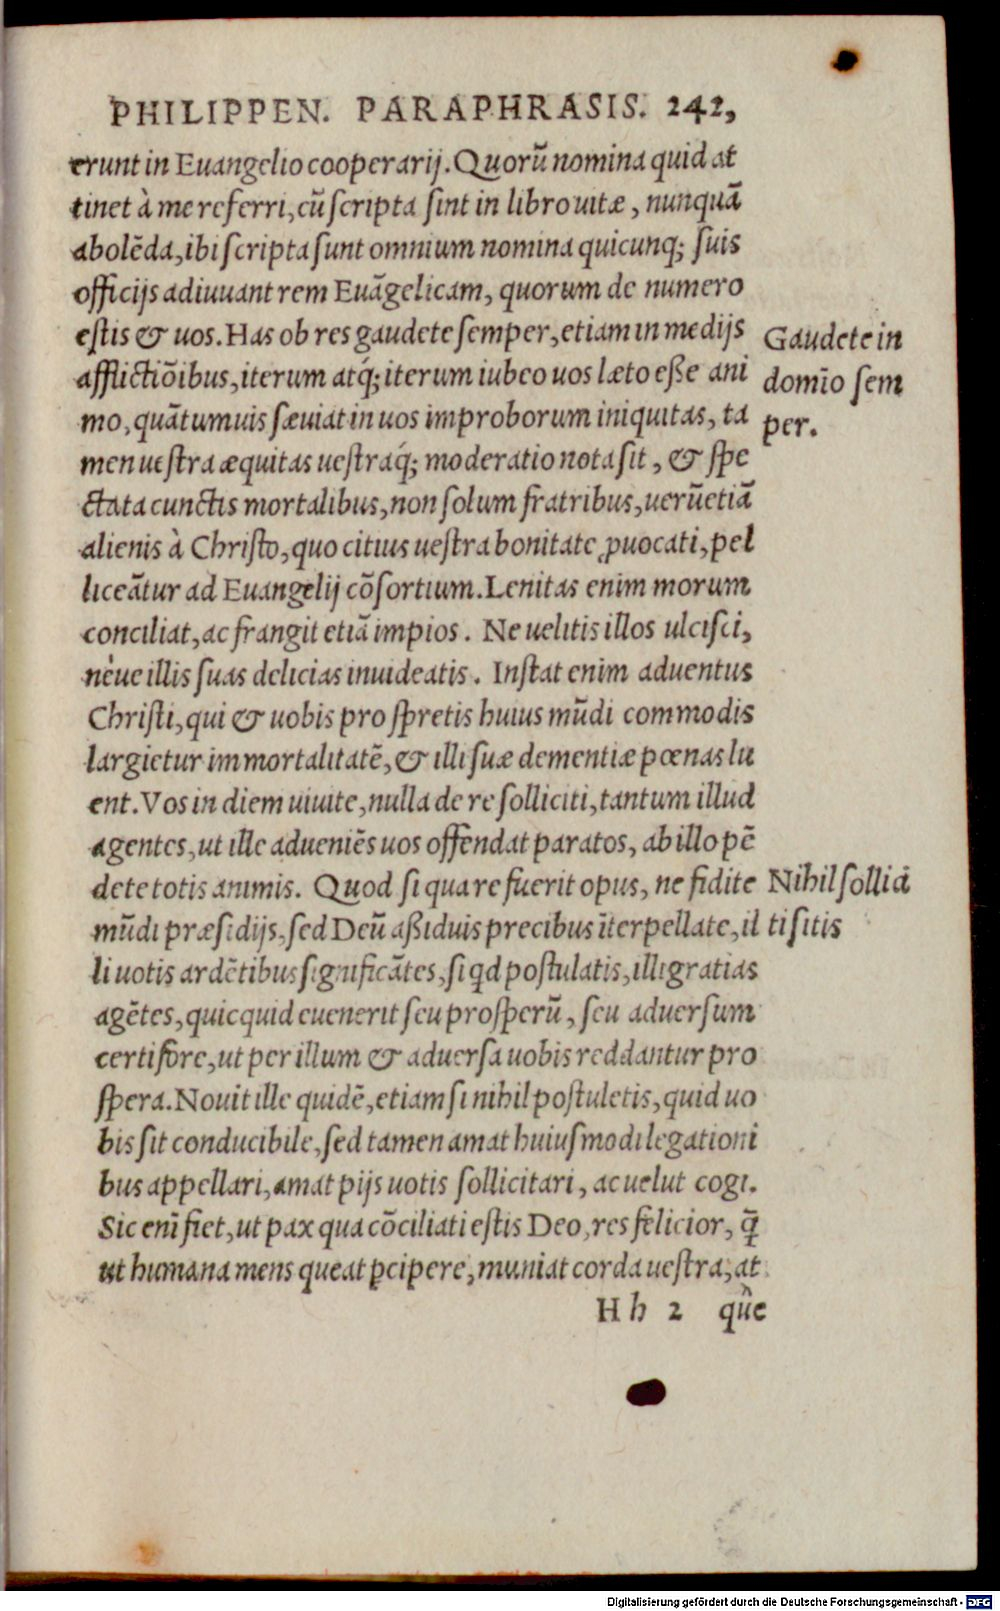 PHILIPPEN. PARAPHRASIS. 242,
erunt in Euangelio cooperarij. Quorũ nomina quid at
tinet à me referri, cũ scripta sint in libro uitæ, nunquã
abolẽda, ibi scripta sunt omnium nomina quicunq; suis
officijs adiuuant rem Euãgelicam, quorum de numero
estis & uos. Has ob res gaudete semper, etiam in medijs
afflictiõibus, iterum atq́; iterum iubeo uos læto eße ani
mo, quãtumuis sæuiat in uos improborum iniquitas, ta
men uestra æquitas uestraq́; moderatio nota sit, & spe
ctata cunctis mortalibus, non solum fratribus, uerũetiã
alienis à Christo, quo citius uestra bonitate ꝓuocati, pel
liceãtur ad Euangelij cõsortium. Lenitas enim morum
conciliat, ac frangit etiã impios. Ne uelitis illos ulcisci,
nèue illis suas delicias inuideatis. Instat enim aduentus
Christi, qui & uobis pro spretis huius mũdi commodis
largietur immortalitatẽ, & illi suæ dementiæ pœnas lu
ent. Vos in diem uiuite, nulla de re solliciti, tantum illud
agentes, ut ille adueniẽs uos offendat paratos, ab illo pẽ
dete totis animis. Quod si qua re fuerit opus, ne fidite
mũdi præsidijs, sed Deũ aßiduis precibus ĩterpellate, il
li uotis ardẽtibus significãtes, si qd postulatis, illi gratias
agẽtes, quicquid euenerit seu prosperũ, seu aduersum
certi fore, ut per illum & aduersa uobis reddantur pro
spera. Nouit ille quidẽ, etiam si nihil postuletis, quid uo
bis sit conducibile, sed tamen amat huiusmodi legationi
bus appellari, amat pijs uotis sollicitari, ac uelut cogi.
Sic enĩ fiet, ut pax qua cõciliati estis Deo, res felicior, q̃
ut humana mens queat ꝑcipere, muniat corda uestra, at
Hh 2 q̃ue
Gaudete in
domĩo sem
per.
Nihil sollici
ti sitis
Digitalisierung gefördert durch die Deutsche Forschungsgemeinschaft - DFG